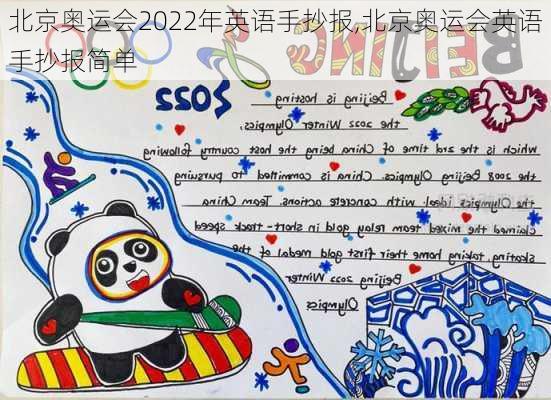 北京奥运会2022年英语手抄报,北京奥运会英语
手抄报简单
BEIJING
2022
Beijing is hosting
the 2022 Winter Olympics,
which is the 2rd time of China being the host country following
the 2008 Beijing Olympics. China is committed to pursuing
the Olympics ideal. with concrete actions. Team China
claimed the mixed team relay gold in short-track speed
skating, taking home their first gold medal of the
Beijing 2022 Winter
Olympics